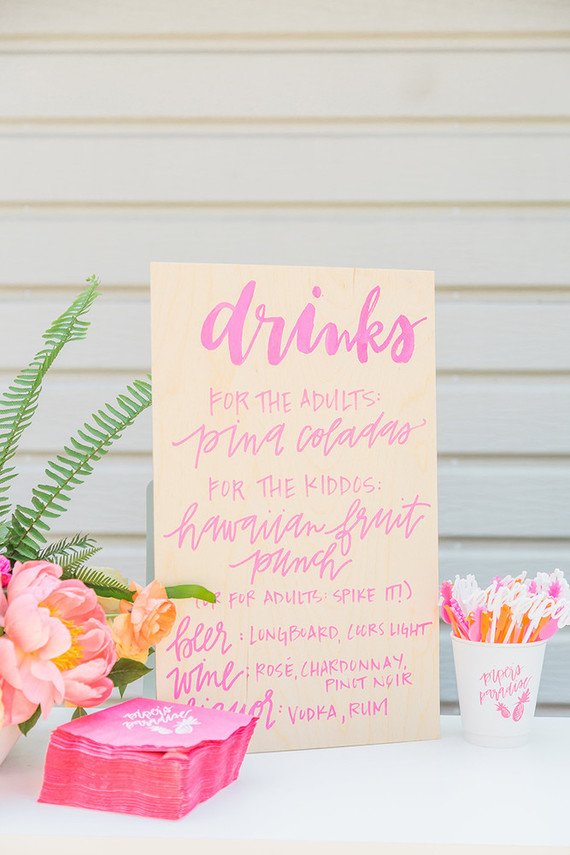 drinks
FOR THE ADULTS:
pina coladas
FOR THE KIDDOS:
hawaiian fruit
punch
(OR FOR ADULTS: SPIKE IT!)
beer: LONGBOARD, COORS LIGHT
wine: ROSÉ, CHARDONNAY,
PINOT NOIR
liquor: VODKA, RUM
pipers
paradise
pipers
paradise